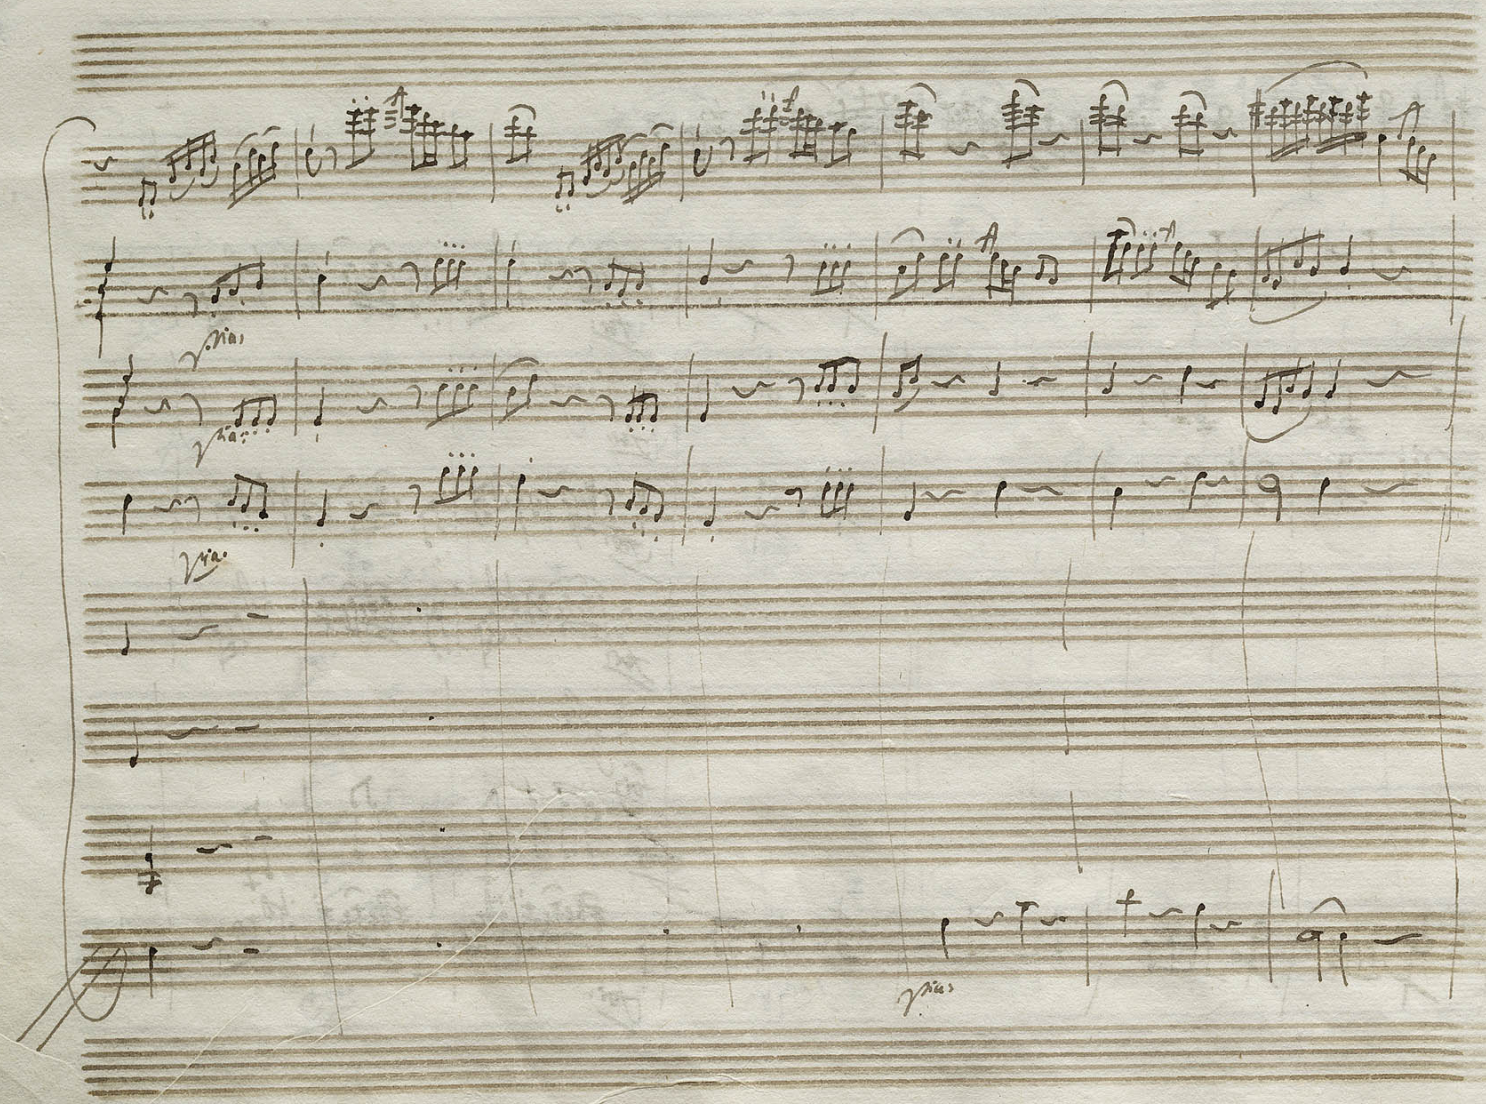 pia:
pia:
pia:
pia: